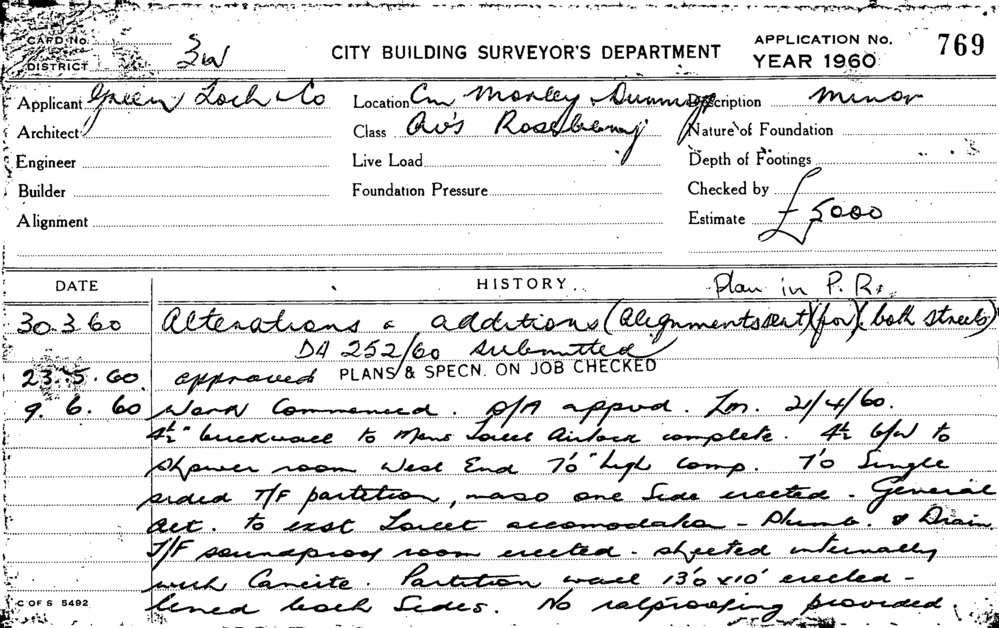 CARD No. APPLICATION No. 769
DISTRICT 3W CITY BUILDING SURVEYOR'S DEPARTMENT YEAR 1960
Applicant Green Loch & Co Location Cnr Morley & Dunning Description Minor
Architect Class Av's Rosebery Nature of Foundation
Engineer Live Load Depth of Footings
Builder Foundation Pressure Checked by
Alignment Estimate £5000
DATE HISTORY Plan in P. R.
30.3.60 Alterations & additions (alignments sent) (for) (both streets)
DA 252/60 submitted
23.5.60 approved PLANS & SPECN. ON JOB CHECKED
9.6.60 Work Commenced. D/A appvd. Lm. 21/4/60.
4½" brickwall to Mens Toilet Airlock complete. 4½ b/w to
shower room West End 7'0" high comp. 7'0 Single
sided T/F partition, maso one Side erected. General
Alt. to exst Toilet accomodation - Plumb. & Drain
T/F soundproof room erected - sheeted internally
with Caneite. Partition wall 13'6 x 10' erected -
C OF S 5492 lined both Sides. No ratproofing provided